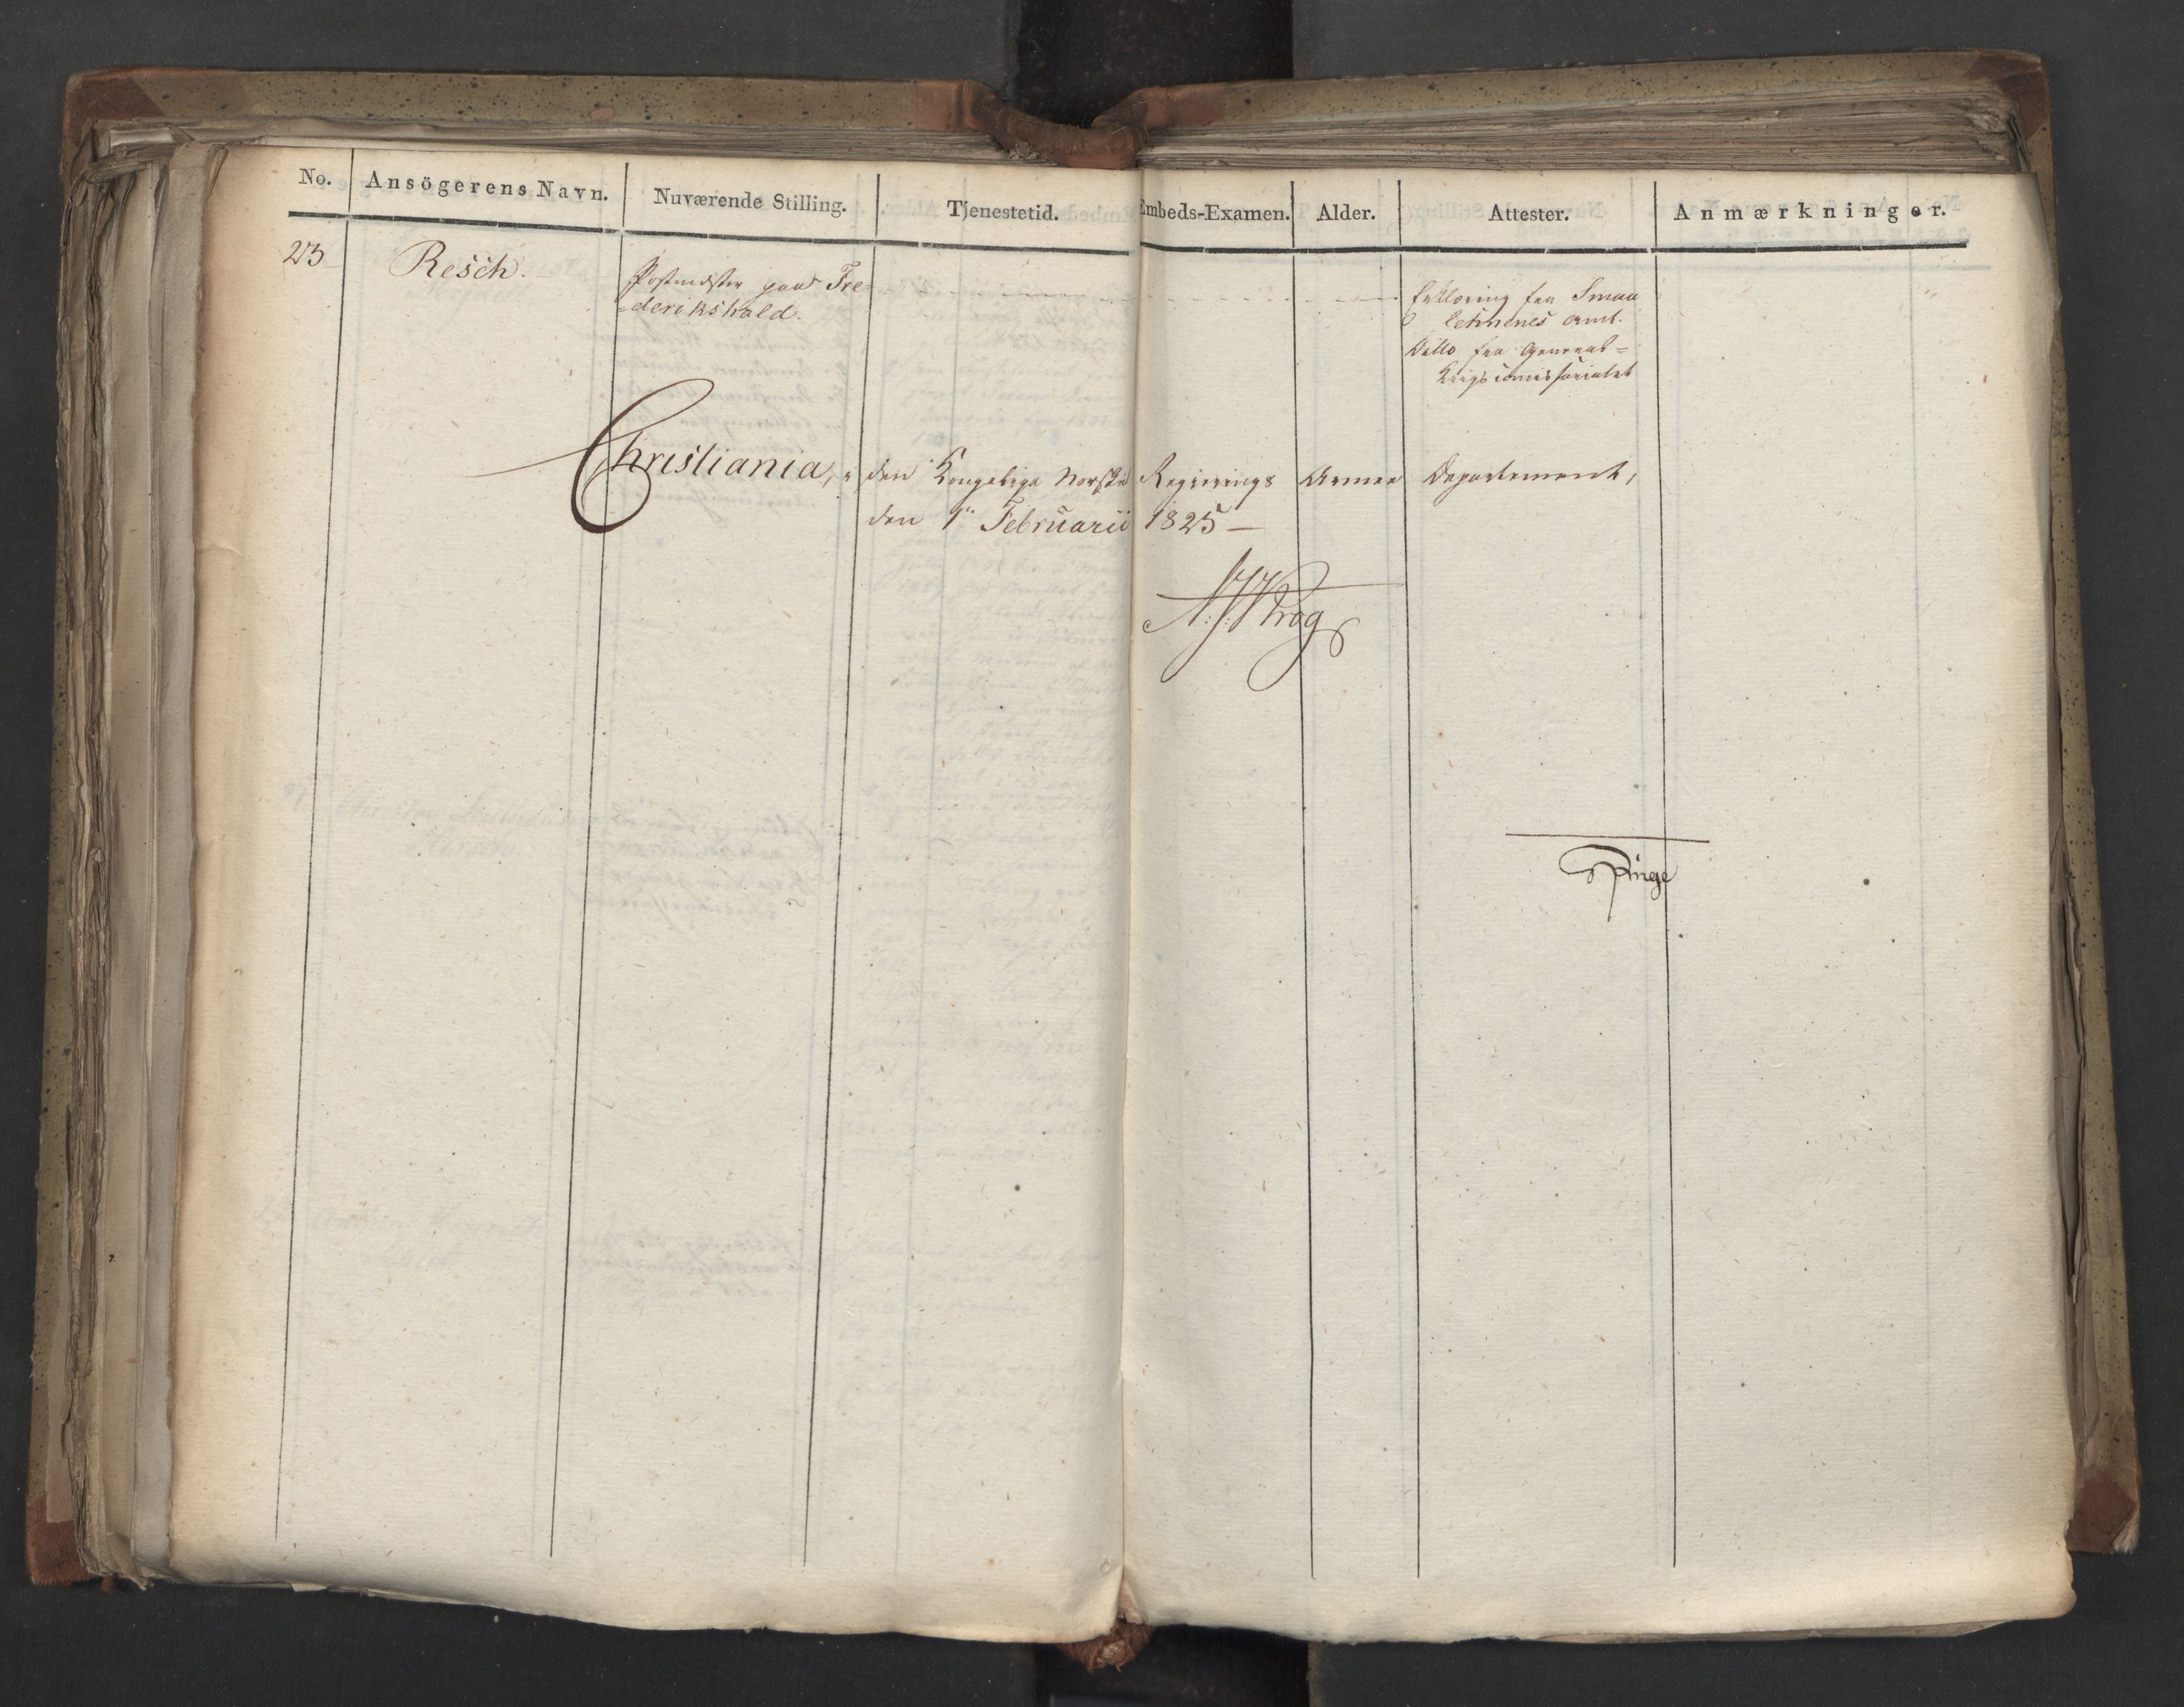 No. Ansögerens Navn. Nuværende Stilling. Tjenestetid. Embeds-Examen. Alder. Attester. Anmærkninger.
23 Resch. Postmester paa Fre-
=derikshald.
Erklæring fra Smaa
lehnenes Amt.
Ditto fra General=
Krigscommissariatet
Christiania, i den Kongelige Norske Regjerings Armee Departement,
den 1ste Februarii 1825
Krog
Ringe